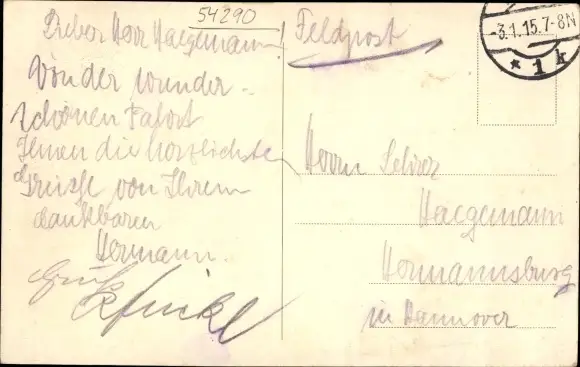 54290
Lieber Herr Haegemann!
Von der wunder-
schönen Fahrt
Ihnen die herzlichsten
Grüsse von Ihrem
dankbaren
Hermann.
Gruß
Feldpost
-3.1.15.7-8N.
* 1 k
Herrn Lehrer
Haegemann
Hermannsburg
in Hannover